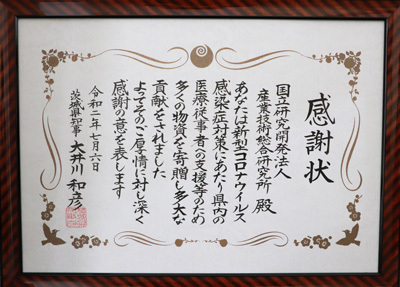 感謝状
国立研究開発法人
産業技術総合研究所 殿
あなたは新型コロナウイルス
感染症対策にあたり県内の
医療従事者への支援等のため
多くの物資を寄贈し多大な
貢献をされました
よってそのご厚情に対し深く
感謝の意を表します
令和二年七月六日
茨城県知事 大井川 和彦